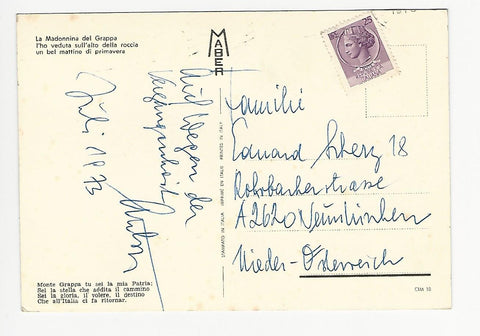 La Madonnina del Grappa
l'ho veduta sull'alto della roccia
un bel mattino di primavera
MABER
25
Auf Wegen der
Vergangenheit
Juli 1973
Anton
STAMPATO IN ITALIA IMPRIMÉ EN ITALIE PRINTED IN ITALY
Familie
Eduard Scherz 18
Rohrbacherstrasse
A2620 Neunkirchen
Nieder-Österreich
Monte Grappa tu sei la mia Patria:
Sei la stella che addita il cammino
Sei la gloria, il volere, il destino
Che all'Italia ci fa ritornar.